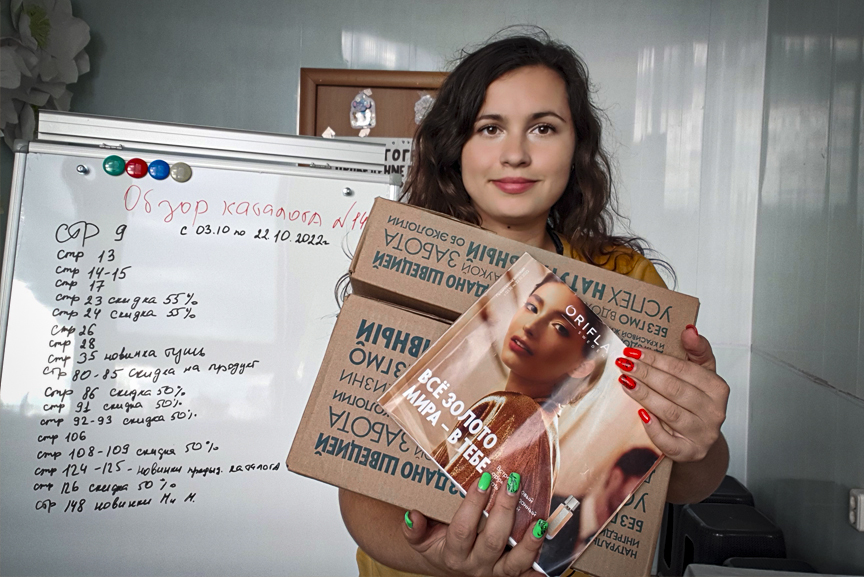 Обзор каталога №14
с 03.10 по 22.10.2022г
стр 9
стр 13
стр 14-15
стр 17
стр 23 скидка 55%
стр 24 скидка 55%
стр 26
стр 28
стр 35 новинка тушь
стр 80-85 скидка на продукт
стр 86 скидка 50%
стр 91 скидка 50%
стр 92-93 скидка 50%
стр 106
стр 108-109 скидка 50%
стр 124-125-новинки предыд. каталога
стр 126 скидка 50%
стр 148 новинки
ЗДАНО ШВЕЦИЕЙ
АУКОЙ ЗАБОТА
ОБ ЭКОЛОГИИ
УСПЕХ
БЕЗ ГМО
ЖИЗНИ
ЭКОЛОГИИ
ЗАБОТА
ЗДАНО ШВЕЦИЕЙ
ORIFLA
ВСЁ ЗОЛОТО
МИРА – В ТЕБЕ